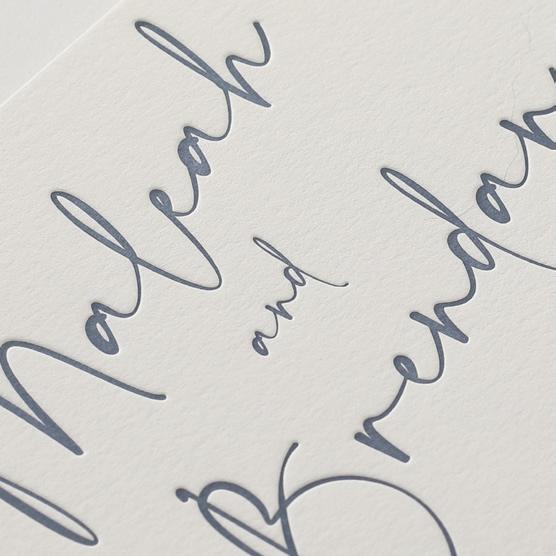 Maleah
and
Brendan